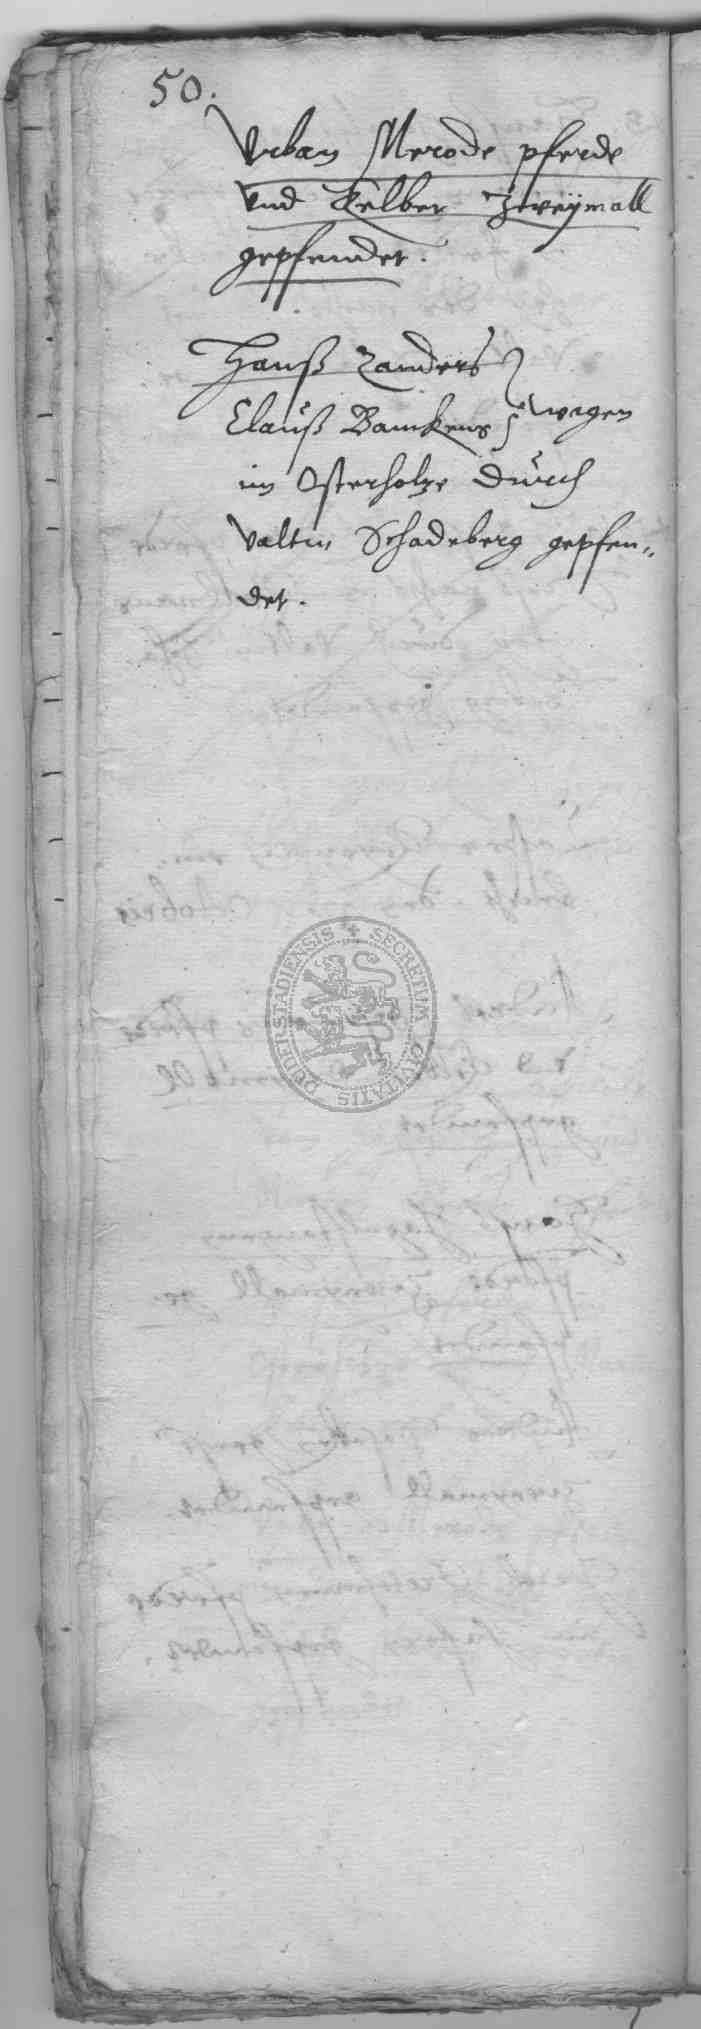 50.
Vrban Merode pferde
vnd Kelber Zweÿmall
gepfendet.
Hanß Zanders
Clauß Bamkens wagen
im Osterholtze durch
Valtin Schadeberg gepfen„
det.
SECRETUM CIVITATIS DUDERSTADIENSIS